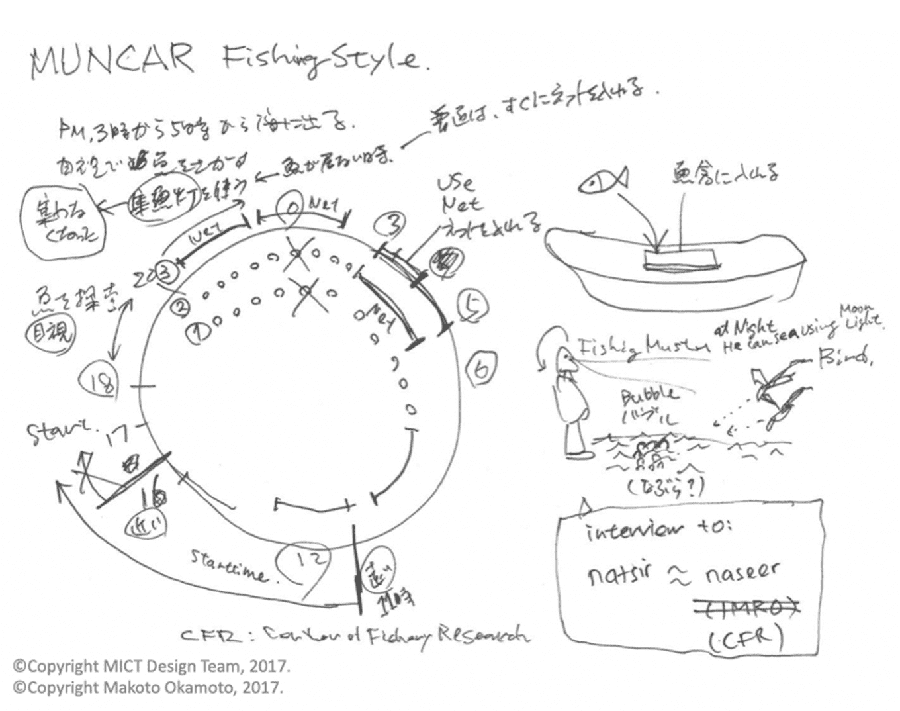 MUNCAR Fishing Style.
PM, 3時から5時から海に出る.
普通は、すぐにネットを入れる.
魚が居ない時.
集魚灯を使う
USE
Net
ネットを入れる
魚倉に入れる
0
Net
Net
3
5
6
Net
20
3
2
1
魚を探索
目視
18
Start.
17
16
近い
Start time.
12
遠い
11時
Fishing Master
at Night
He can sea using Moon Light.
Bird.
Bubble
バブル
(なぶら?)
interview to:
natsir ≈ naseer
(IMRO)
(CFR)
CFR: Center of Fishery Research
©Copyright MICT Design Team, 2017.
©Copyright Makoto Okamoto, 2017.